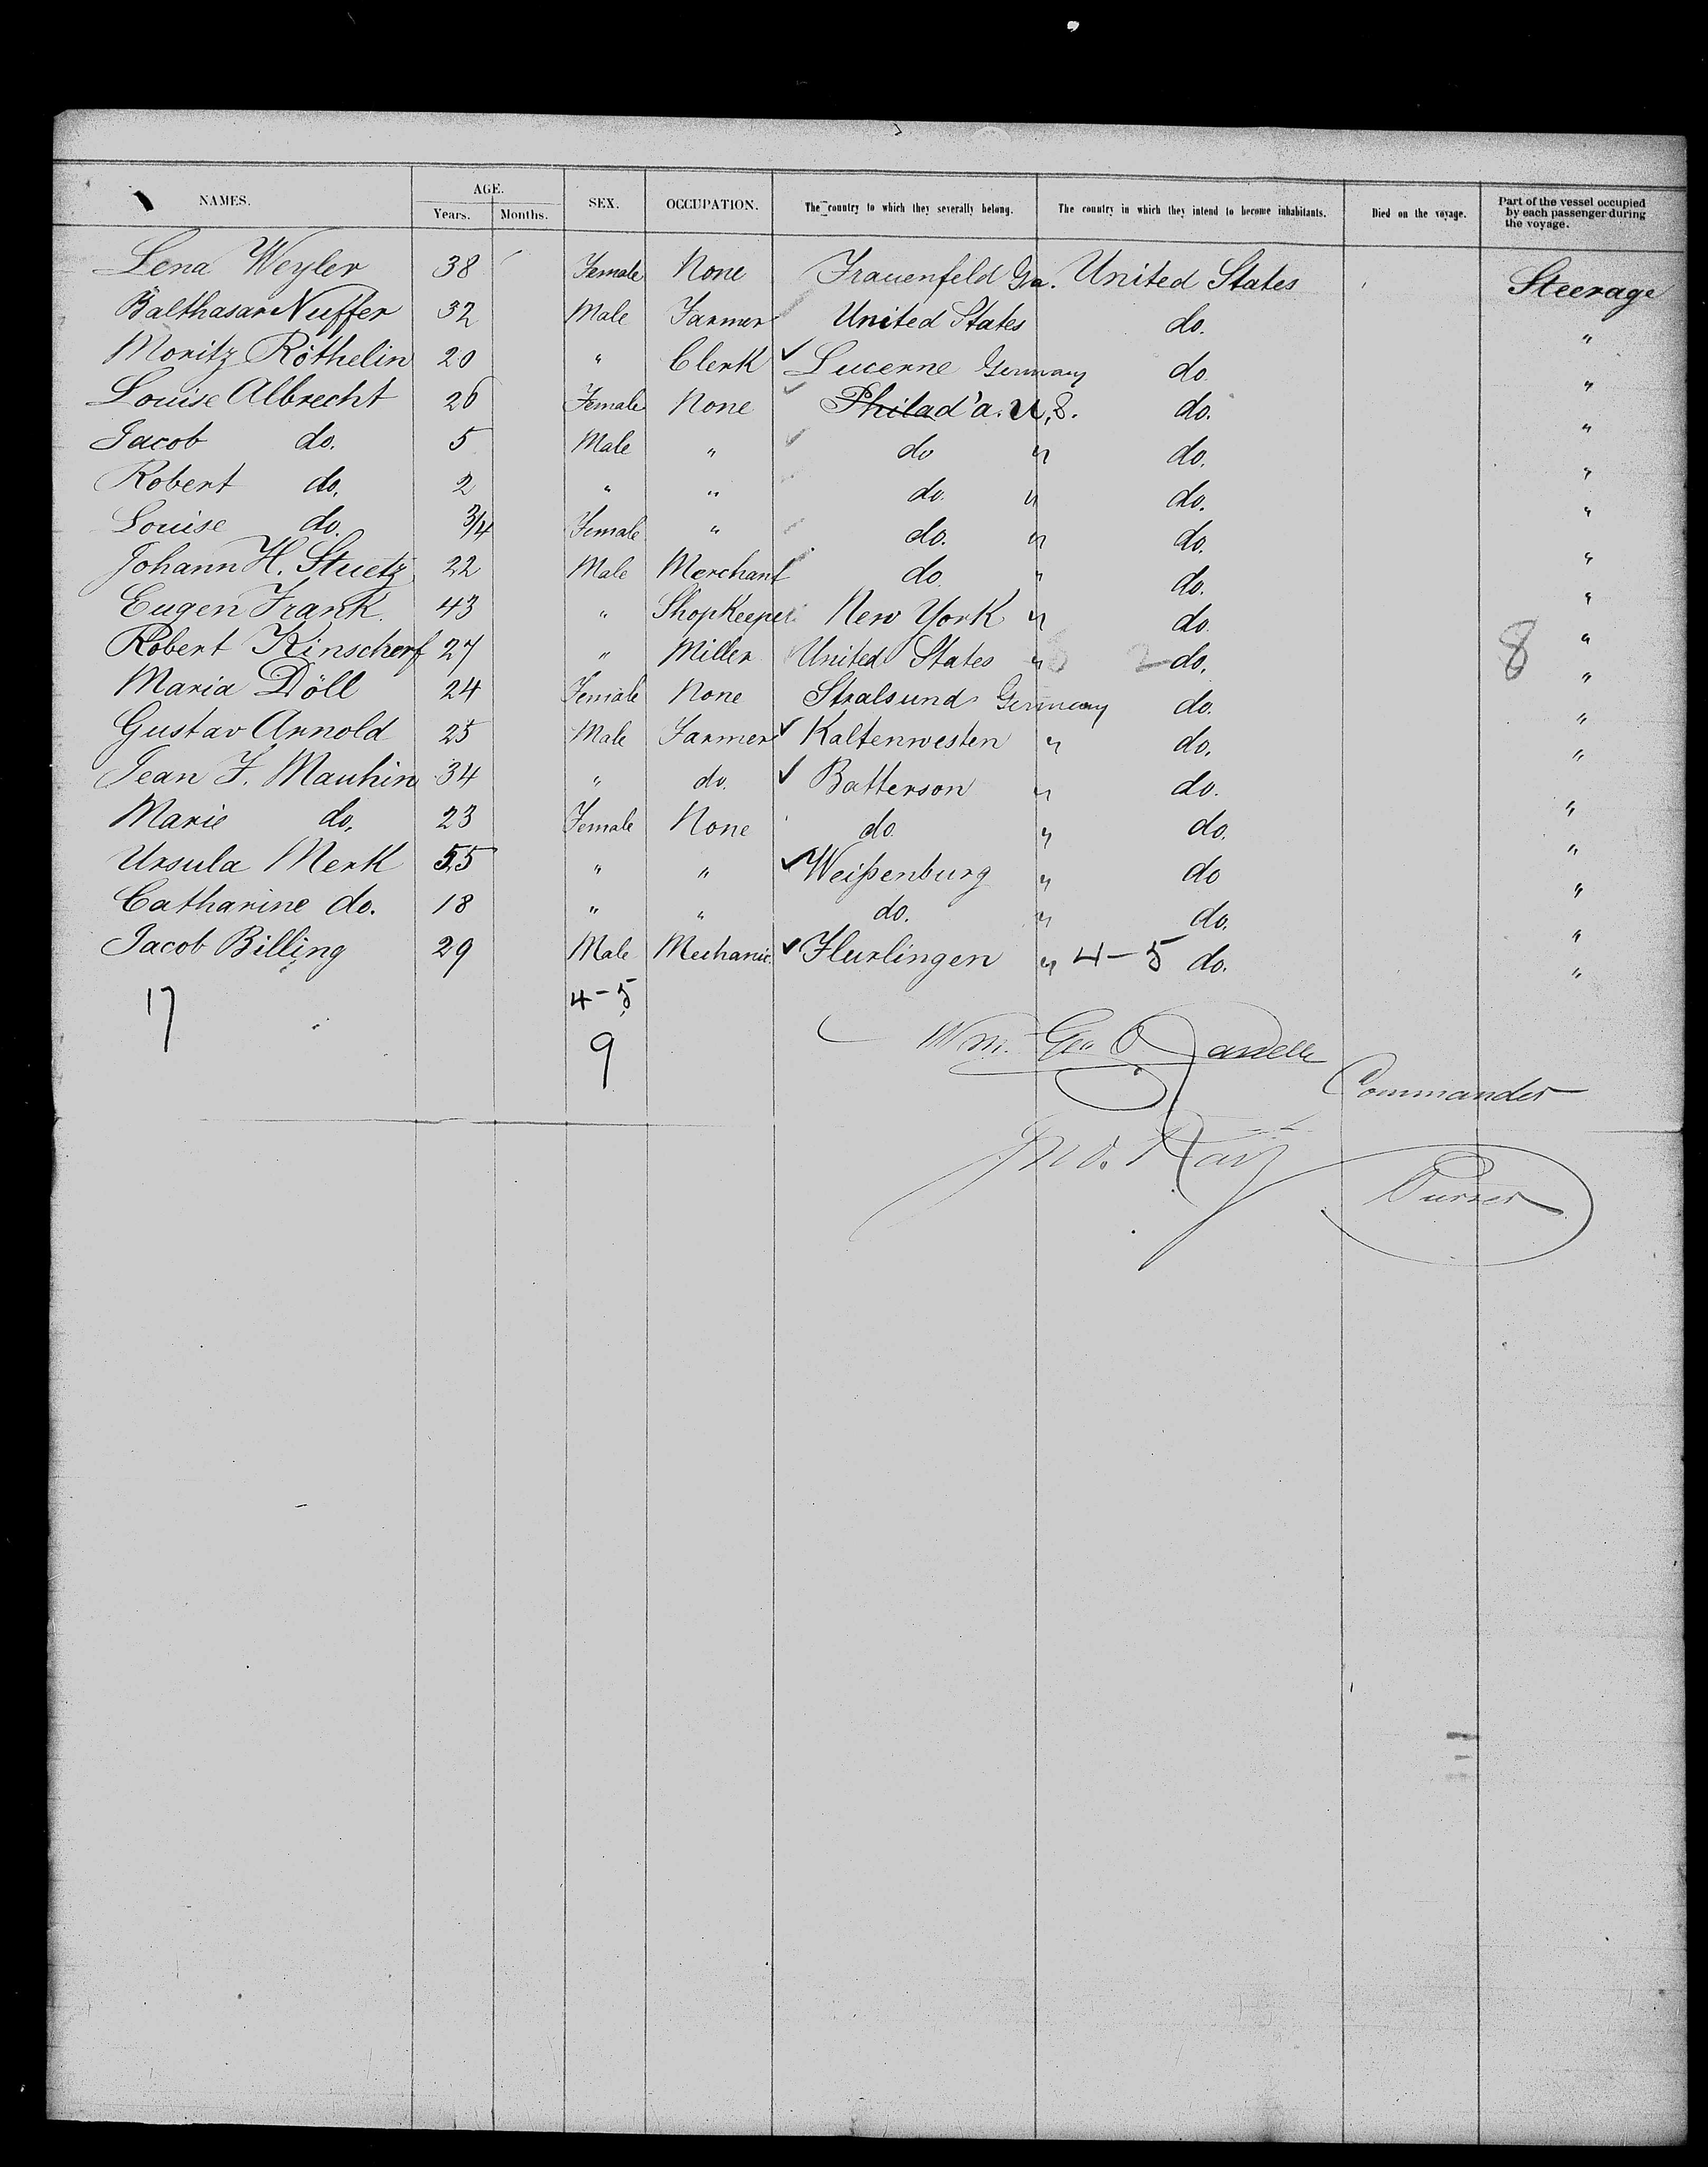 NAMES. AGE. SEX. OCCUPATION. The country to which they severally belong. The country in which they intend to become inhabitants. Died on the voyage. Part of the vessel occupied by each passenger during the voyage.
Years. Months.
Lena Weyler 38 Female None Frauenfeld Ga. United States Steerage
Balthasar Nuffer 32 Male Farmer United States do. "
Moritz Röthelin 20 " Clerk ✓ Lucerne Germany do. "
Louise Albrecht 26 Female None ✓ Philad'a. U.S. do. "
Jacob do. 5 Male " ✓ do " do. "
Robert do. 2 " " do. " do. "
Louise do. 3/4 Female " do. " do. "
Johann H. Stuetz 22 Male Merchant do. " do. "
Eugen Frank 43 " Shopkeeper New York " do. "
Robert Kinscherf 27 " Miller United States " 6 2 do. 8 "
Maria Döll 24 Female None Stralsund Germany do. "
Gustav Arnold 25 Male Farmer ✓ Kaltenwesten " do. "
Jean F. Mauhin 34 " do. ✓ Batterson " do. "
Marie do. 23 Female None do. " do. "
Ursula Merk 55 " " ✓ Weißenburg " do "
Catharine do. 18 " " do. " do. "
Jacob Billing 29 Male Mechanic ✓ Flurlingen " 4-5 do. "
17 4-5
9
Wm. Geo Randle Commander
Jno. Purser